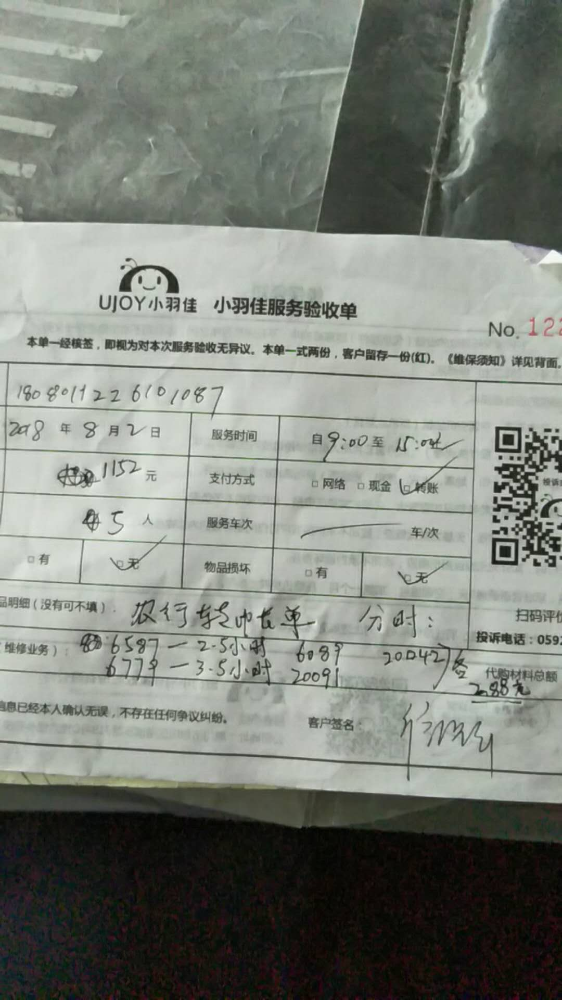 UJOY小羽佳 小羽佳服务验收单
No. 122
本单一经核签，即视为对本次服务验收无异议。本单一式两份，客户留存一份(红)。《维保须知》详见背面。
1808011226101087
2018 年 8 月 2 日 服务时间 自 9:00 至 15:00
1152 元 支付方式 □ 网络 □ 现金 □ 转账
5 人 服务车次 车/次
□ 有 □ 无 物品损坏 □ 有 □ 无
扫码评价
品明细（没有可不填）. 农行 单 分时：
投诉电话：0592
维修业务）： 6587 — 2.5小时 6089 20042
代购材料总额
6779 — 3.5小时 20091 各
288元
信息已经本人确认无误，不存在任何争议纠纷。 客户签名：